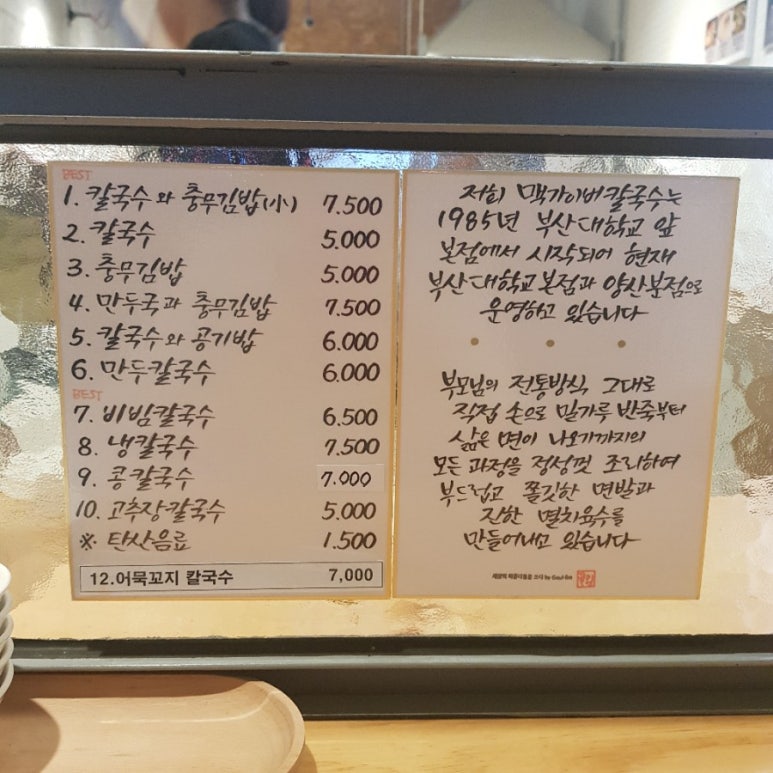 BEST
1. 칼국수와 충무김밥(小) 7.500
2. 칼국수 5.000
3. 충무김밥 5.000
4. 만두국과 충무김밥 7.500
5. 칼국수와 공기밥 6.000
6. 만두칼국수 6.000
BEST
7. 비빔칼국수 6,500
8. 냉칼국수 7,500
9. 콩칼국수 7.000
10. 고추장칼국수 5.000
※ 탄산음료 1.500
12.어묵꼬지 칼국수 7,000
저희 맥가이버칼국수는
1985년 부산대학교 앞
본점에서 시작되어 현재
부산대학교본점과 양산분점으로
운영하고 있습니다
부모님의 전통방식 그대로
직접 손으로 밀가루 반죽부터
삶은 면이 나오기까지의
모든 과정을 정성껏 조리하여
부드럽고 쫄깃한 면발과
진한 멸치육수를
만들어내고 있습니다